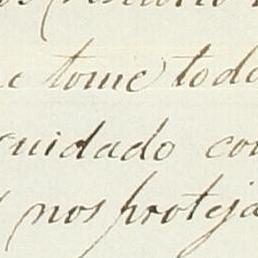 e tome todo
cuidado con
nos proteja